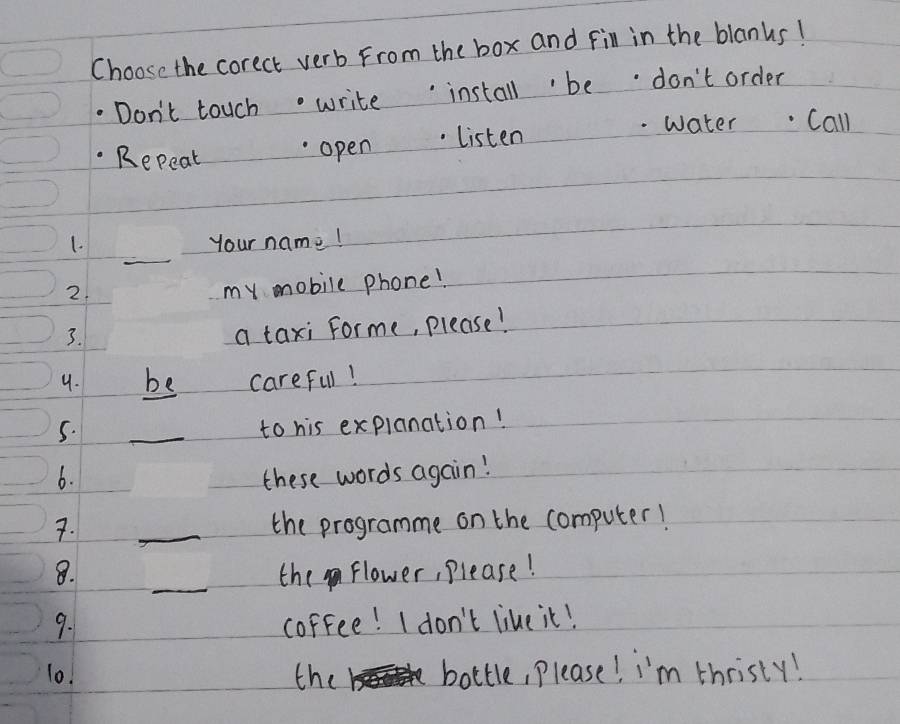 Choose the corect verb From the box and fill in the blanks!
• Don't touch • write • install • be • don't order
• Repeat • open • listen • water • Call
1. ___ Your name!
2. my mobile phone!
3. a taxi For me, please!
4. be careful!
5. ___ to his explanation!
6. these words again!
7. ___ the programme on the computer!
8. ___ the Flower, Please!
9. coffee! I don't like it!
10. the bottle, Please! i'm thristy!